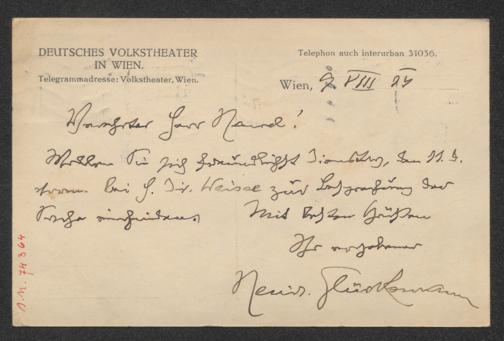 DEUTSCHES VOLKSTHEATER
IN WIEN.
Telegrammadresse: Volkstheater, Wien.
Telephon auch interurban 31036.
Wien, 9 VIII 24
Verehrter Herr
Wollen Sie sich freundlichst Dienstag, den
vorm. bei H. Dir. Weisse zur Besprechung der
Sache einfinden.
Mit besten Grüßen
Ihr ergebener
Heinr. Glücksmann